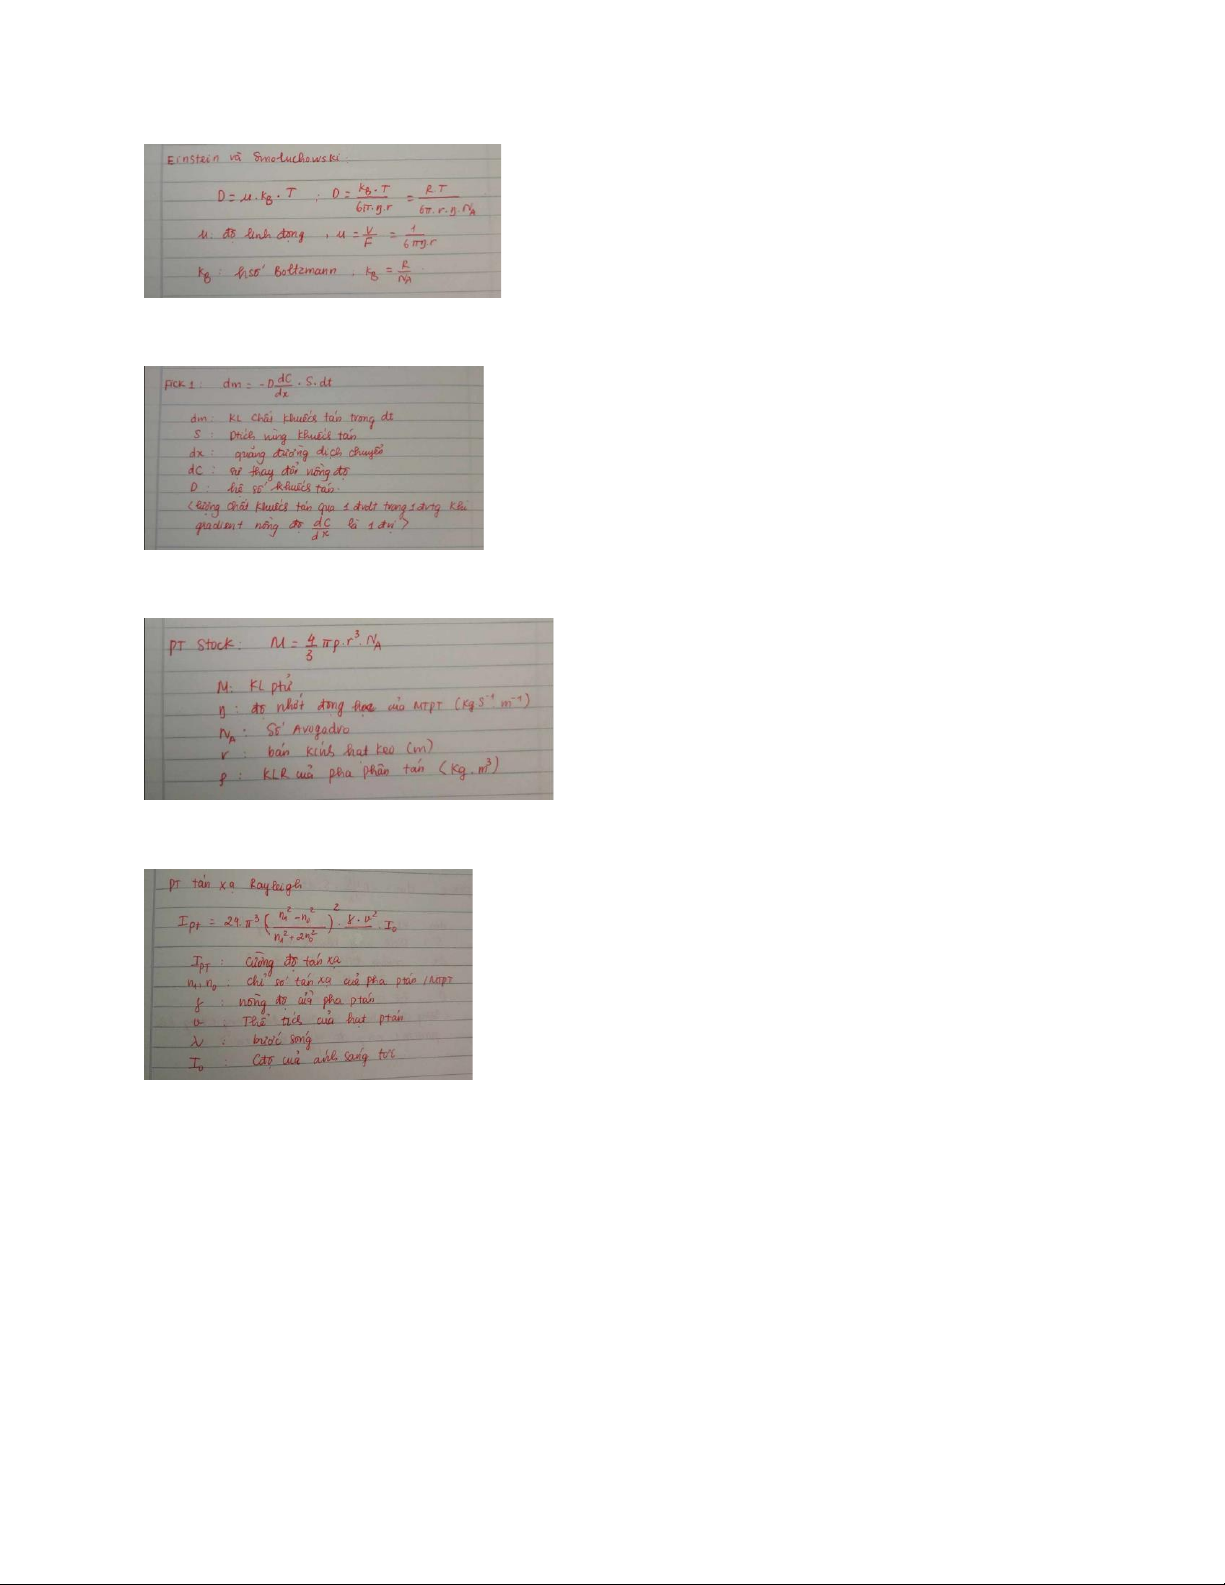 Einstein và Smoluchowski:
D = u . kB . T ; D = kB . T / 6π.η.r = R.T / 6π.r.η.NA
u: độ linh động , u = V/F = 1 / 6πη.r
kB : hsố Boltzmann , kB = R/NA
FICK 1 : dm = -D dC/dx . S . dt
dm : KL chất khuếch tán trong dt
S : Dtích vùng khuếch tán
dx : quãng đường dịch chuyển
dC : sự thay đổi nồng độ
D : hệ số khuếch tán.
(lượng chất khuếch tán qua 1 đvdt trong 1 đvtg khi
gradient nồng độ dC/dx là 1 đvị)
PT Stock : M = 4/3 πρ.r³.NA
M: KL ptử
η : độ nhớt động học của MTPT (Kg S⁻¹ m⁻¹)
NA : Số Avogadro
r : bán kính hạt keo (m)
ρ : KLR của pha phân tán (Kg.m³)
PT tán xạ Rayleigh
Ipt = 24.π³ (n₁² - n₀² / n₁² + 2n₀²)² . γ.υ² . I₀
IPT : cường độ tán xạ
n₁, n₀ : chỉ số tán xạ của pha ptán / MTPT
γ : nồng độ của pha ptán
υ : Thể tích của hạt ptán
λ : bước sóng
I₀ : Cđộ của ánh sáng tới